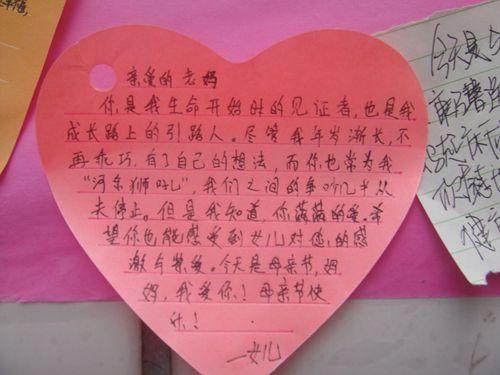 亲爱的老妈
你是我生命开始时的见证者,也是我
成长路上的引路人。尽管我年岁渐长,不
再乖巧,有了自己的想法,而你也常为我
“河东狮吼”,我们之间的争吵几乎从
未停止。但是我知道,你满满的爱。希
望你也能感受到女儿对您的感
激与亲爱。今天是母亲节,妈
妈,我爱你!母亲节快
乐!
—女儿
今天是